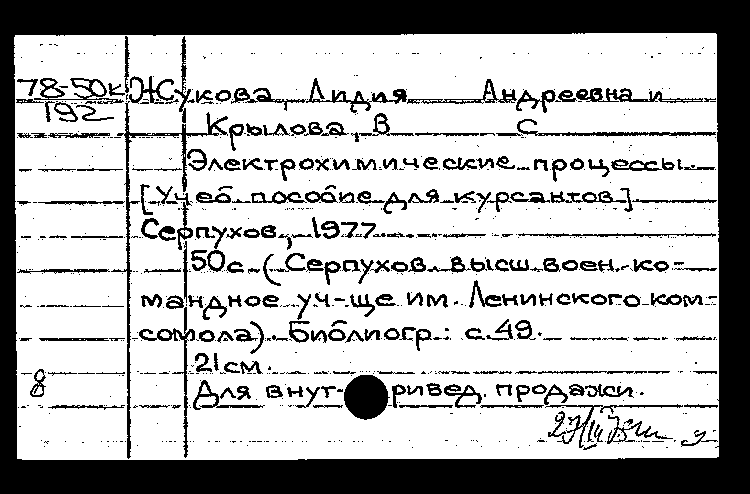 78-50к Жукова, Лидия Андреевна и
192
Крылова, В С
Электрохимические процессы.
[Учеб. пособие для курсантов].
Серпухов, 1977.
50с. (Серпухов. высш. воен. ко-
мандное уч-ще им. Ленинского ком-
сомола). Библиогр.: с. 49.
21 см.
8 Для внут- ривед. продажи.